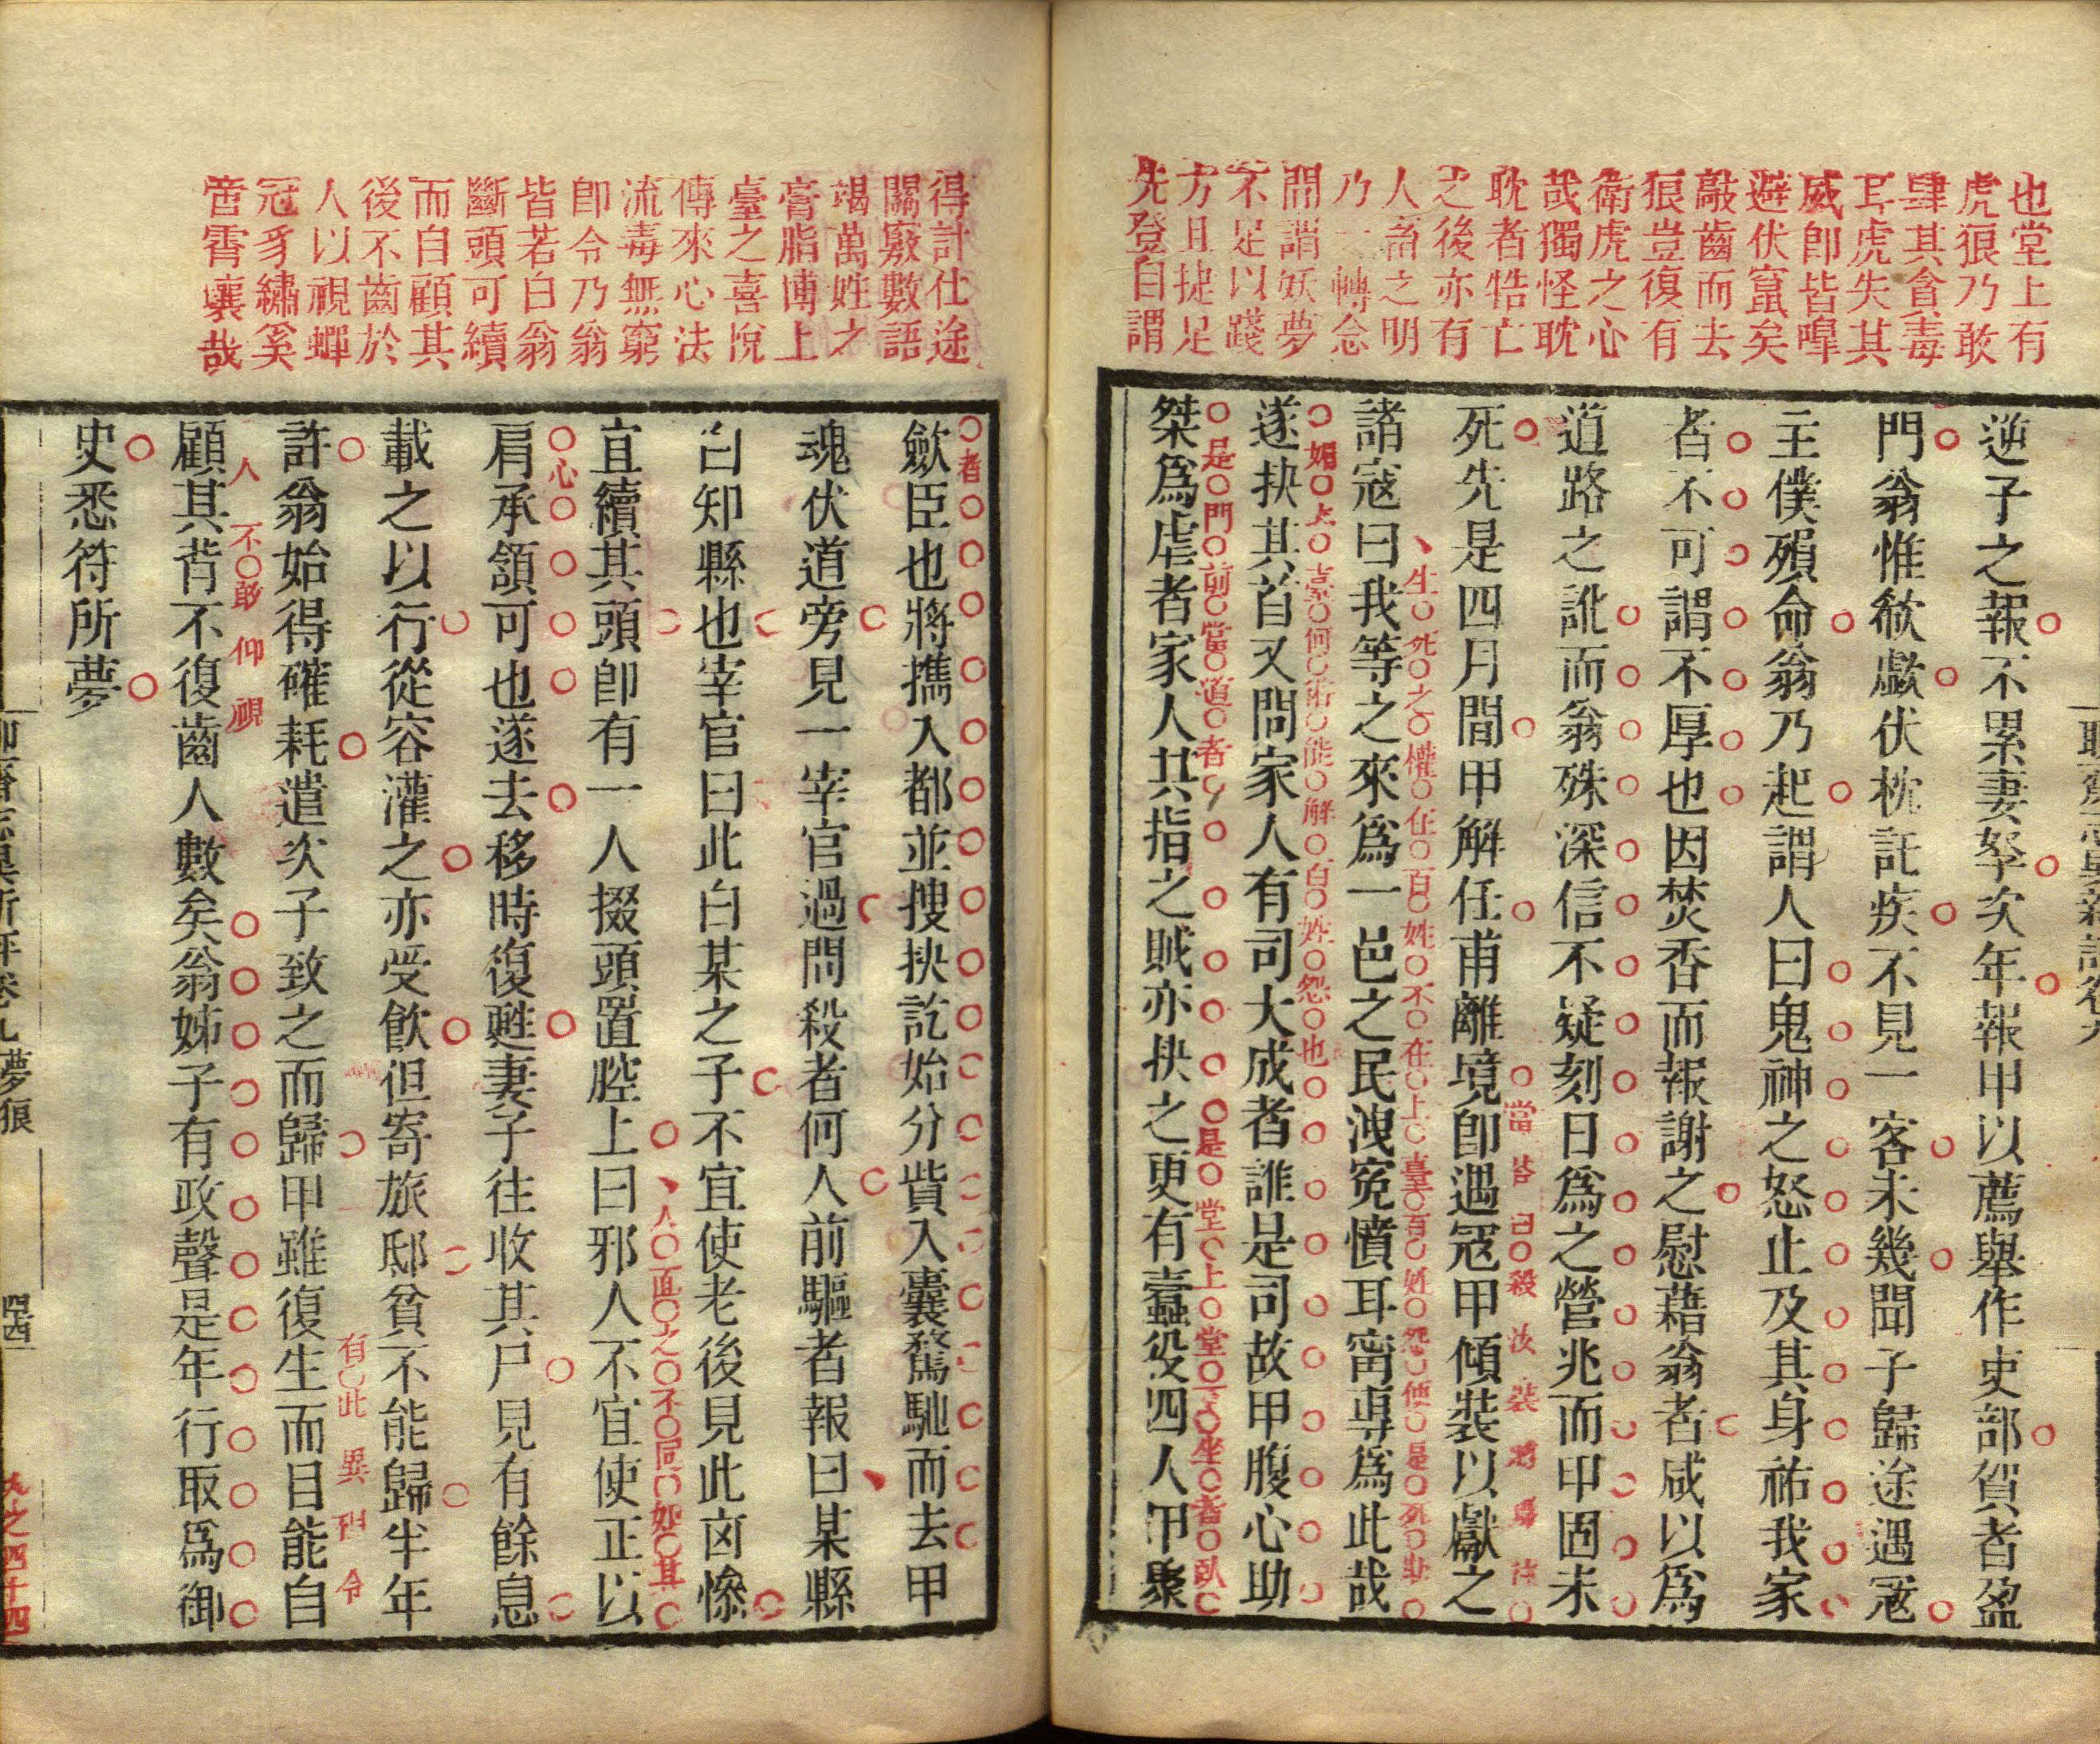 也堂上有
虎狼乃敢
肆其貪毒
耳虎失其
威卽皆嘷
避伏竄矣
敲齒而去
狼豈復有
衛虎之心
哉獨怪耽
耽者牿亡
之後亦有
人畜之明
乃一轉念
間謂妖夢
不足以踐
方且捷足
先登自謂
逆子之報不累妻孥次年報甲以薦舉作吏部賀者盈
門翁惟欷歔伏枕託疾不見一客未幾聞子歸途遇寇
主僕殞命翁乃起謂人曰鬼神之怒止及其身祐我家
者不可謂不厚也因焚香而報謝之慰藉翁者咸以爲
道路之訛而翁殊深信不疑刻日爲之營兆而甲固未
死先是四月間甲解任甫離境卽遇寇甲傾裝以獻之
當答曰殺汝裝將焉往
諸寇曰我等之來爲一邑之民洩寃憤耳甯專爲此哉
生死之權在百姓不在上臺百姓怨便是死
遂抉其首又問家人有司大成者誰是司故甲腹心助
媚上臺何術能解百姓怨也
桀爲虐者家人共指之賊亦抉之更有蠹役四人甲聚
是門前當道者是堂上堂下坐者臥
者
斂臣也將攜入都並搜抉訖始分貲入囊騖馳而去甲
魂伏道旁見一宰官過問殺者何人前驅者報曰某縣
白知縣也宰官曰此白某之子不宜使老後見此凶慘
宜續其頭卽有一人掇頭置腔上曰邪人不宜使正以
人面之不同如其
心
肩承頷可也遂去移時復甦妻子往收其尸見有餘息
載之以行從容灌之亦受飲但寄旅邸貧不能歸半年
許翁始得確耗遣次子致之而歸甲雖復生而目能自
有此異相令
人不敢仰視
顧其背不復齒人數矣翁姊子有政聲是年行取爲御
史悉符所夢
得計仕途
關竅數語
竭萬姓之
膏脂博上
臺之喜悅
傳來心法
流毒無窮
卽令乃翁
皆若白翁
斷頭可續
而自顧其
後不齒於
人以視蟬
冠豸繡奚
啻霄壤哉
夢狼
四四
九之四十四